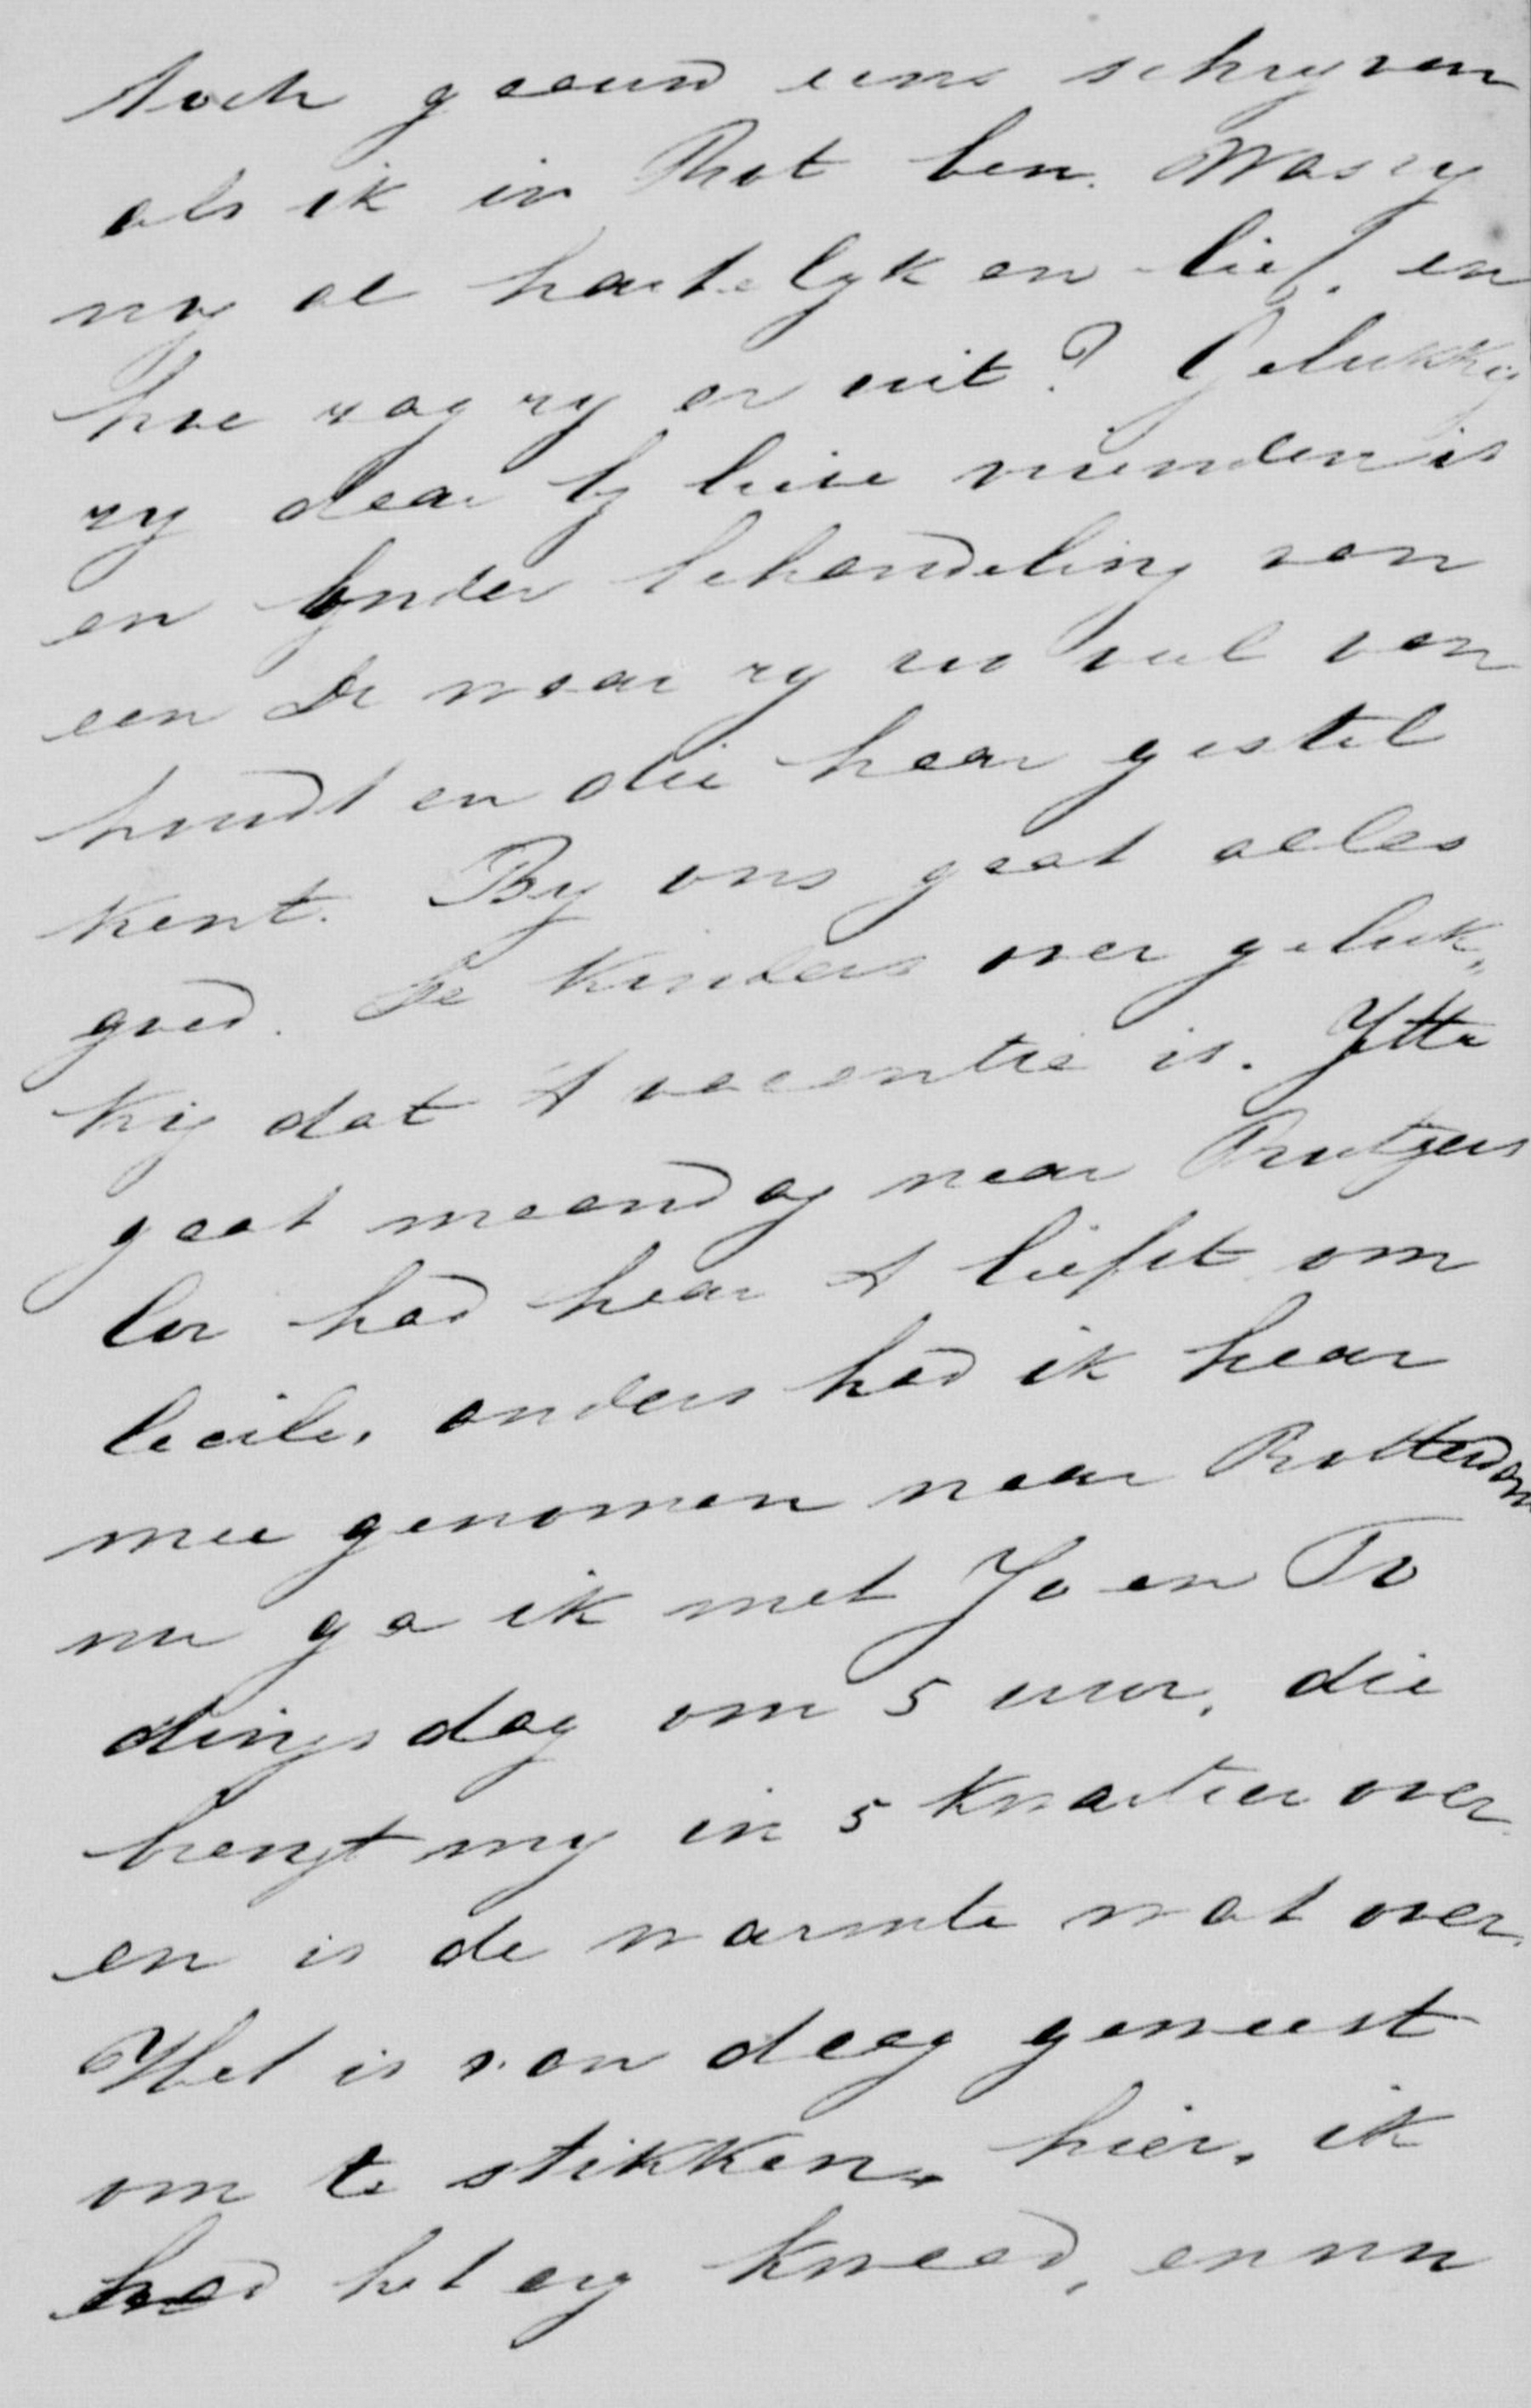 toch gaauw eens schryven
als ik in Rot ben. Was zy
nog al hartelyk en lief. en
hoe zag zy er uit? Gelukkig
zy daar by lieve vrienden is
en onder behandeling van
een Dr waar zy zoo veel van
houdt en die haar gestel
kent. By ons gaat alles
goed. De kinders over geluk„
kig dat 't vacantie is.
gaat maandag naar Rutgers
Cor had haar 't liefst om
Cecile, anders had ik haar
mee genomen naar Rotterdam
nu ga ik met Jo en To
dingsdag om 5 uur, die
brengt my in 5 kwartier over
en is de warmte wat over.
Het is van daag geweest
om te stikken, hier, ik
had het erg kwaad, en nu